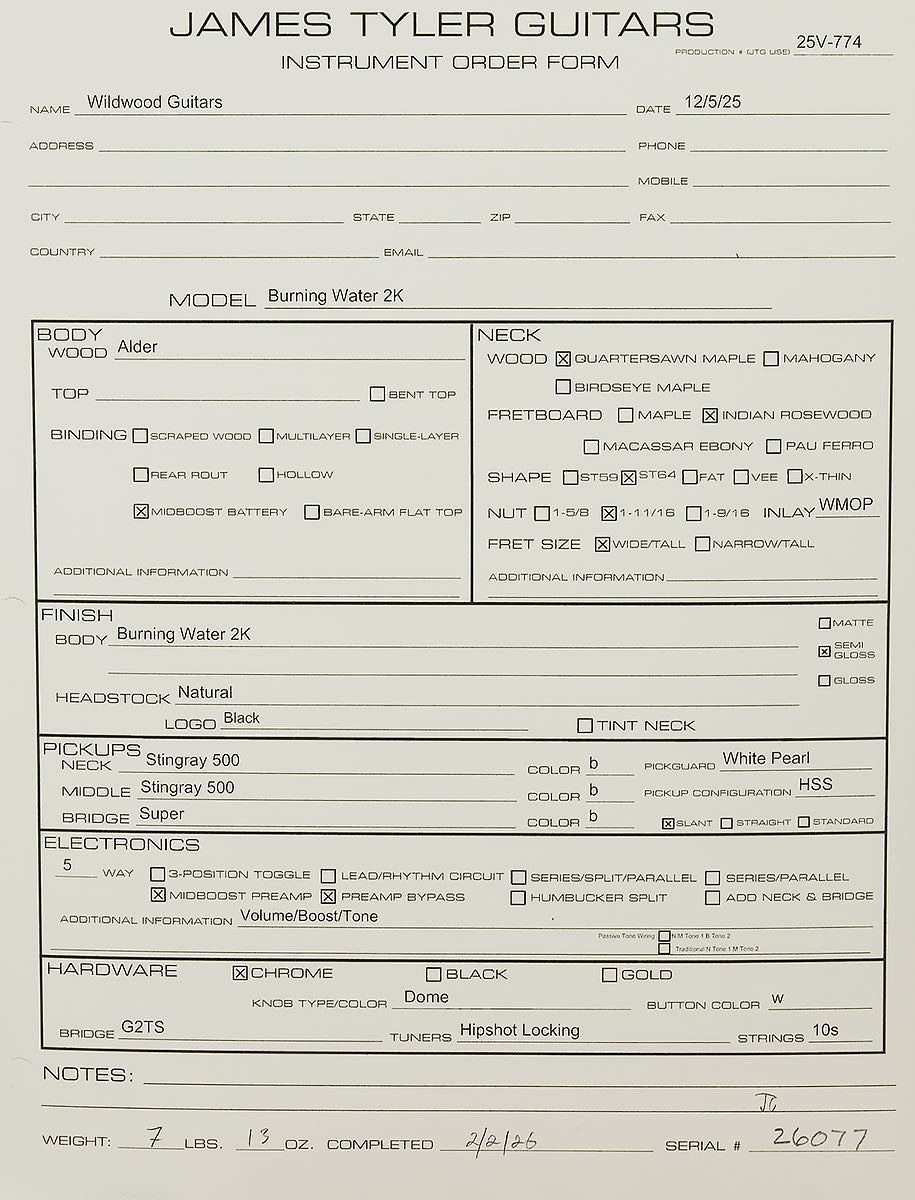 JAMES TYLER GUITARS
PRODUCTION # (JTG USE) 25V-774
INSTRUMENT ORDER FORM
NAME Wildwood Guitars DATE 12/5/25
ADDRESS PHONE
MOBILE
CITY STATE ZIP FAX
COUNTRY EMAIL
MODEL Burning Water 2K
BODY
WOOD Alder
TOP ☐ BENT TOP
BINDING ☐ SCRAPED WOOD ☐ MULTILAYER ☐ SINGLE-LAYER
☐ REAR ROUT ☐ HOLLOW
☒ MIDBOOST BATTERY ☐ BARE-ARM FLAT TOP
ADDITIONAL INFORMATION
NECK
WOOD ☒ QUARTERSAWN MAPLE ☐ MAHOGANY
☐ BIRDSEYE MAPLE
FRETBOARD ☐ MAPLE ☒ INDIAN ROSEWOOD
☐ MACASSAR EBONY ☐ PAU FERRO
SHAPE ☐ ST59 ☒ ST64 ☐ FAT ☐ VEE ☐ X-THIN
NUT ☐ 1-5/8 ☒ 1-11/16 ☐ 1-9/16 INLAY WMOP
FRET SIZE ☒ WIDE/TALL ☐ NARROW/TALL
ADDITIONAL INFORMATION
FINISH
BODY Burning Water 2K
☐ MATTE
☒ SEMI GLOSS
☐ GLOSS
HEADSTOCK Natural
LOGO Black ☐ TINT NECK
PICKUPS
NECK Stingray 500 COLOR b PICKGUARD White Pearl
MIDDLE Stingray 500 COLOR b PICKUP CONFIGURATION HSS
BRIDGE Super COLOR b ☒ SLANT ☐ STRAIGHT ☐ STANDARD
ELECTRONICS
5 WAY ☐ 3-POSITION TOGGLE ☐ LEAD/RHYTHM CIRCUIT ☐ SERIES/SPLIT/PARALLEL ☐ SERIES/PARALLEL
☒ MIDBOOST PREAMP ☒ PREAMP BYPASS ☐ HUMBUCKER SPLIT ☐ ADD NECK & BRIDGE
ADDITIONAL INFORMATION Volume/Boost/Tone
Passive Tone Wiring ☐ N/M Tone 1 B Tone 2
☐ Traditional N Tone 1 M Tone 2
HARDWARE ☒ CHROME ☐ BLACK ☐ GOLD
KNOB TYPE/COLOR Dome BUTTON COLOR w
BRIDGE G2TS TUNERS Hipshot Locking STRINGS 10s
NOTES:
WEIGHT: 7 LBS. 13 OZ. COMPLETED 2/2/26 SERIAL # 26077